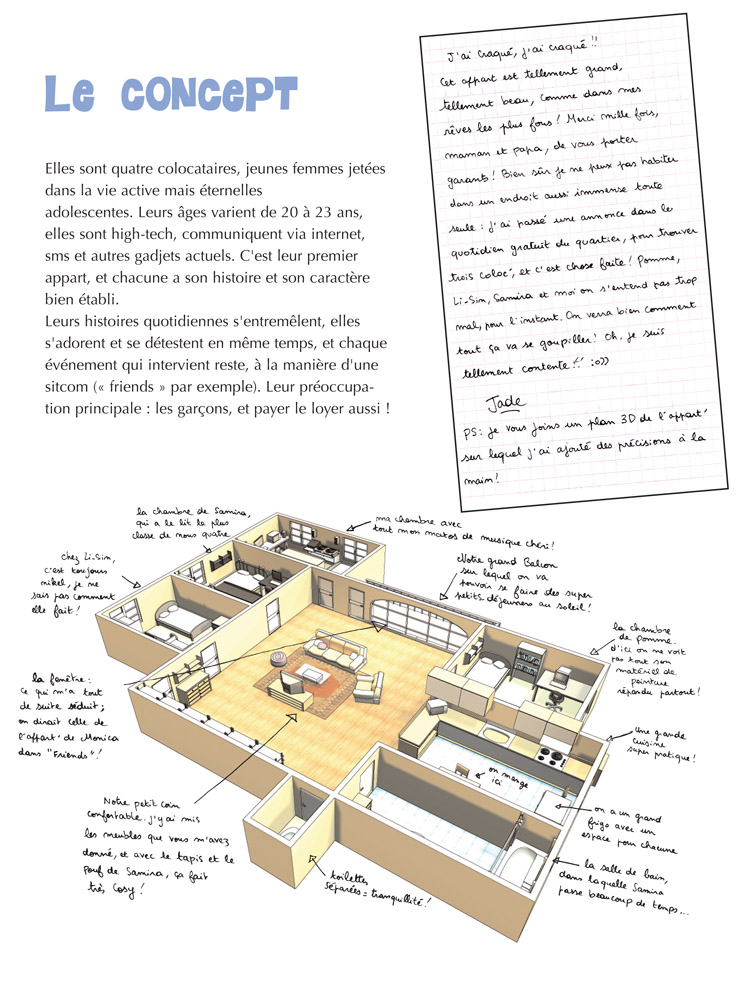 Le concept
Elles sont quatre colocataires, jeunes femmes jetées
dans la vie active mais éternelles
adolescentes. Leurs âges varient de 20 à 23 ans,
elles sont high-tech, communiquent via internet,
sms et autres gadjets actuels. C'est leur premier
appart, et chacune a son histoire et son caractère
bien établi.
Leurs histoires quotidiennes s'entremêlent, elles
s'adorent et se détestent en même temps, et chaque
événement qui intervient reste, à la manière d'une
sitcom (« friends » par exemple). Leur préoccupa-
tion principale : les garçons, et payer le loyer aussi !
J'ai craqué, j'ai craqué !!
Cet appart est tellement grand,
tellement beau, comme dans mes
rêves les plus fous ! Merci mille fois,
maman et papa, de vous porter
garants ! Bien sûr je ne peux pas habiter
dans un endroit aussi immense toute
seule : j'ai passé une annonce dans le
quotidien gratuit du quartier, pour trouver
trois coloc', et c'est chose faite ! Pomme,
Li-Sim, Samira et moi on s'entend pas trop
mal, pour l'instant. On verra bien comment
tout ça va se goupiller ! Oh, je suis
tellement contente !! :o))
Jade
PS : je vous joins un plan 3D de l'appart'
sur lequel j'ai ajouté des précisions à la
main !
la chambre de Samira,
qui a le lit le plus
classe de nous quatre
ma chambre avec
tout mon matos de musique chéri !
chez Li-Sim,
c'est toujours
nikel, je ne
sais pas comment
elle fait !
Notre grand Balcon
sur lequel on va
pouvoir se faire des super
petits déjeuners au soleil !
la chambre
de pomme.
d'ici on ne voit
pas tout son
matériel de
peinture
répandu partout !
la fenêtre :
ce qui m'a tout
de suite séduit ;
on dirait celle de
l'appart' de Monica
dans "Friends" !
une grande
cuisine
super pratique !
on mange
ici
Notre petit coin
confortable. j'y ai mis
les meubles que vous m'avez
donné, et avec le tapis et le
pouf de Samira, ça fait
très cosy !
on a un grand
frigo avec un
espace pour chacune
toilettes
séparées = tranquillité !
la salle de bain,
dans laquelle Samira
passe beaucoup de temps...